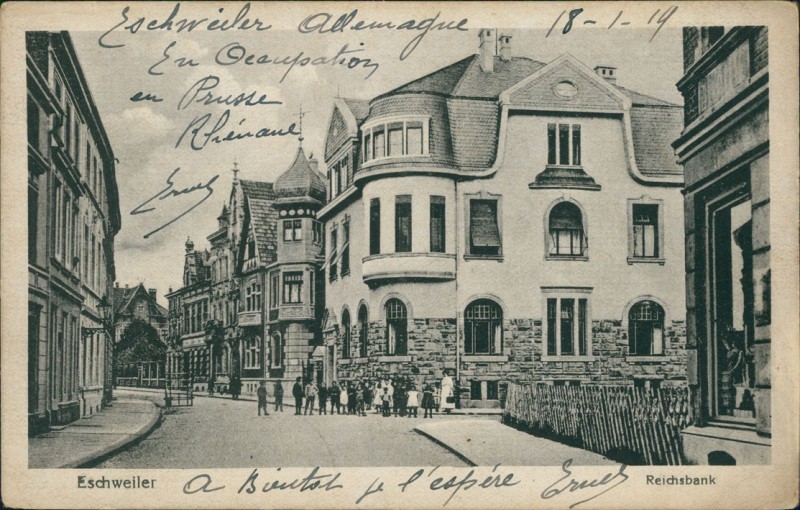 Eschweiler Allemagne 18-1-19
En Occupation
en Prusse
Rhénane
Ernest
Eschweiler
A Bientot je l'espére Ernest
Reichsbank